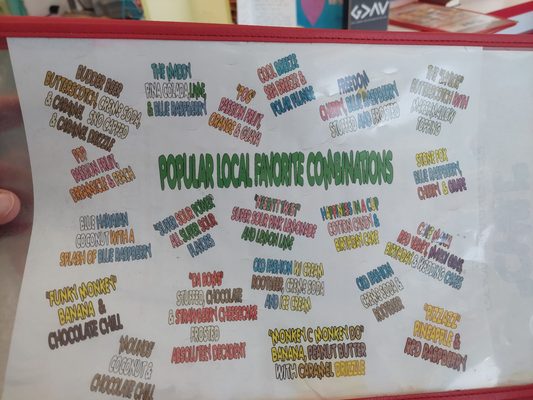 GDAV
BUDDER BEER
BUTTERSCOTCH, CREAM SODA
& CARAMEL
& CARAMEL DRIZZLE
THE MADDY
PINA COLADA, LIME
& BLUE RASPBERRY
"POG"
PASSION FRUIT,
ORANGE & GUAVA
COOL BREEZE
SEA BREEZE &
POLAR PLUNGE
FREEDOM
CHERRY, BLUE RASPBERRY
STUFFED AND FROSTED
BUTTERSCOTCH WITH
MARSHMALLOW
TOPPING
POPULAR LOCAL FAVORITE COMBINATIONS
PEP
PASSION FRUIT,
& PEACH
BLUE RASPBERRY
CHERRY & GRAPE
BLUE HAWAIIAN
COCONUT WITH A
SPLASH OF BLUE RASPBERRY
"SUPER SOUR BOMB"
ALL SUPER SOUR
FLAVORS
SUPER SOUR PINK LEMONADE
AND LEMON LIME
HAPPINESS IN A CUP
COTTON CANDY &
BIRTHDAY CAKE
"FUNKY MONKEY"
BANANA &
CHOCOLATE CHILL
"DA BOMB"
STUFFED, CHOCOLATE
& STRAWBERRY CHEESECAKE
FROSTED
ABSOLUTELY DECADENT
OLD FASHION W/ CREAM
ROOTBEER, CREAM SODA
AND ICE CREAM
OLD FASHION
CREAM SODA &
ROOTBEER
"MOUNDS"
COCONUT &
CHOCOLATE CHILL
"MONKEY C MONKEY DO"
BANANA, PEANUT BUTTER
WITH CARAMEL DRIZZLE
"PIZZAZZ"
PINEAPPLE &
RED RASPBERRY